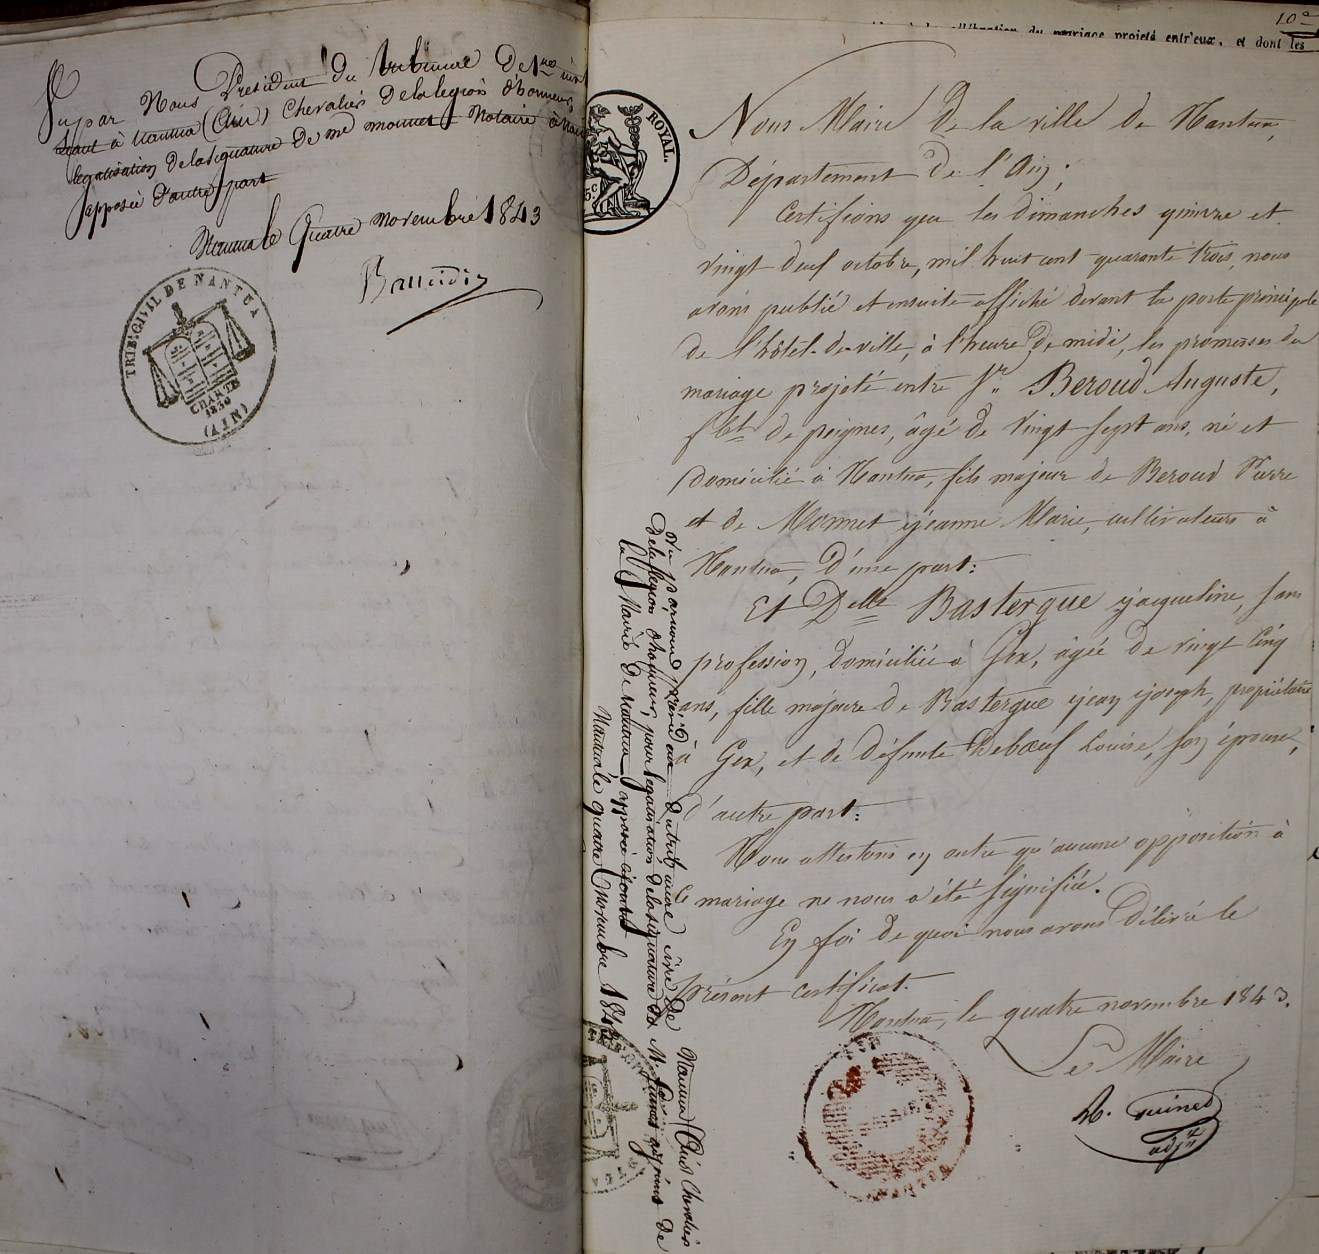 Vu par Nous Président du tribunal de 1ere
séant à Nantua (Ain) Chevalier de la légion d'honneur
légalisation de la signature de me monnet Notaire à
apposée d'autre part
Nantua le Quatre novembre 1843
TRIB: CIVIL DE NANTUA
CHARTE
1830
(AIN)
10e
du mariage projeté entr'eux, et dont les
ROYAL.
5c
Nous Maire de la ville de Nantua,
Département de l'Ain;
Certifions que les dimanches quinze et
vingt deuf octobre, mil huit cent quarante trois, nous
avons publié et ensuite affiché devant la porte principale
de l'hôtel-de-ville, à l'heure de midi, les promesses de
mariage projeté entre Sr. Beroud Auguste,
fbt de peignes, âgé de vingt sept ans, né et
domicilié à Nantua, fils majeur de Beroud Pierre
et de Monnet jeanne Marie, cultivateurs à
Nantua, d'une part:
Et Delle Bastergue jacqueline, sans
profession, domiciliée à Gex, âgée de vingt cinq
ans, fille majeure de Bastergue jean joseph, propriétaire
à Gex, et de défunte Deboeuf Louise, son épouse,
d'autre part:
Nous attestons en outre qu'aucune opposition à
ce mariage ne nous a été signifiée.
En foi de quoi nous avons délivré le
présent certificat.
Nantua, le quatre novembre 1843.
Le Maire
adjt
Vu par nous président du tribunal civil de Nantua (Ain) Chevalier
de la légion d'honneur pour légalisation de la signature de M. adjoint de
la Mairie de Nantua apposée
Nantua le quatre novembre 1843